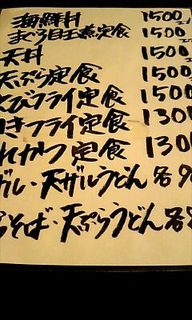 海鮮丼 1500
まぐろ目玉煮定食 1500
天丼 1500
天ぷら定食 1500
えびフライ定食 1500
かきフライ定食 130
ヒレかつ定食 130
ザル・天ザルうどん各9
そば・天ぷらうどん各